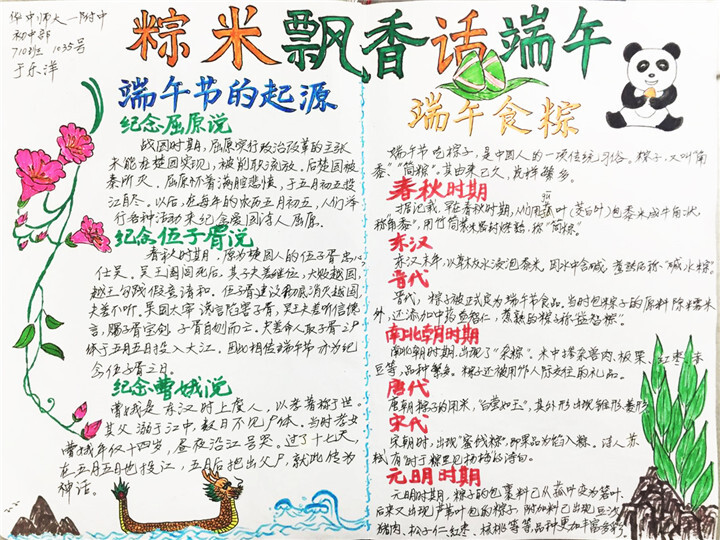 华中师大一附中
初中部
710班 1035号
于乐洋
粽米飘香话端午
端午节的起源
纪念屈原说
战国时期，屈原实行政治改革的主张
未能在楚国实现，被削职流放。后楚国被
秦所灭。屈原怀着满腔悲愤，于五月初五投
江自尽。以后，在每年的农历五月初五，人们举
行各种活动来纪念爱国诗人屈原。
纪念伍子胥说
春秋时期，原为楚国人的伍子胥出
仕吴。吴王阖闾死后，其子夫差继位，大败越国，
越王勾践假意请和。伍子胥建议彻底消灭越国，
夫差不听。吴国太宰谗言陷害子胥，吴王夫差听信谗
言，赐子胥宝剑，子胥自刎而亡。夫差命人取子胥之尸
体于五月五日投入大江。因此相传端午节亦为纪
念伍子胥之日。
纪念曹娥说
曹娥是东汉时上虞人，以孝着称于世。
其父溺于江中，数月不见尸体。当时孝女
曹娥年仅十四岁，昼夜沿江号哭。过了十七天，
在五月五日也投江，五日后把出父尸，就此传为
神话。
端午食粽
端午节吃粽子，是中国人的一项传统习俗。粽子，又叫"角
黍""筒粽"。其由来已久，花样繁多。
春秋时期
据记载，早在春秋时期，人们用菰叶（茭白叶）包黍米成牛角状，
称"角黍"，用竹筒装米密封烤熟，称"筒粽"。
东汉
东汉末年，以草木灰水浸泡黍米，因水中含碱，煮熟后称"碱水粽"。
晋代
晋代，粽子被正式定为端午节食品。当时包粽子的原料除糯米
外，还添加中药益智仁，蒸熟的粽子称"益智粽"。
南北朝时期
南北朝时期，出现了"杂粽"。米中掺杂兽肉、板栗、红枣、赤
豆等，品种繁多。粽子还被用作人际交往的礼品。
唐代
唐朝粽子的用米，"白莹如玉"，其外形出现锥形、菱形。
宋代
宋朝时，出现"蜜饯粽"，即果品为馅入粽。诗人苏
轼有时于粽里见杨梅的诗句。
元明时期
元明时期，粽子的包裹料已从菰叶变为箬叶，
后来又出现芦苇叶包的粽子，附加料已出现豆沙、
猪肉、松子仁、红枣、核桃等等，品种更加丰富多彩。